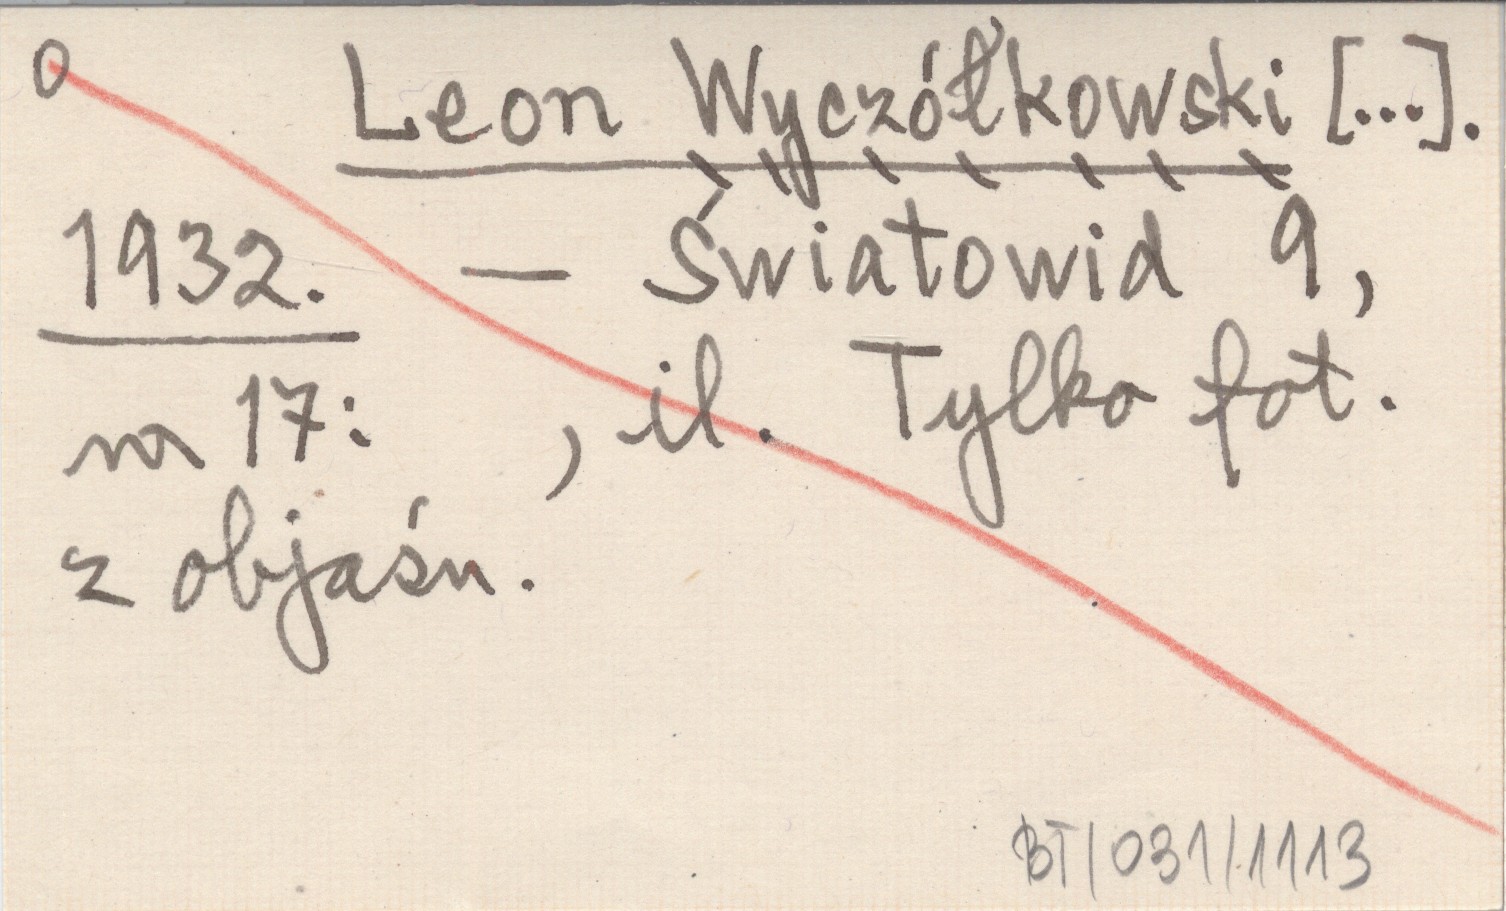 O Leon Wyczółkowski [...].
1932. — Światowid 9,
nr 17: , il. Tylko fot.
z objaśn.
BT/031/1113